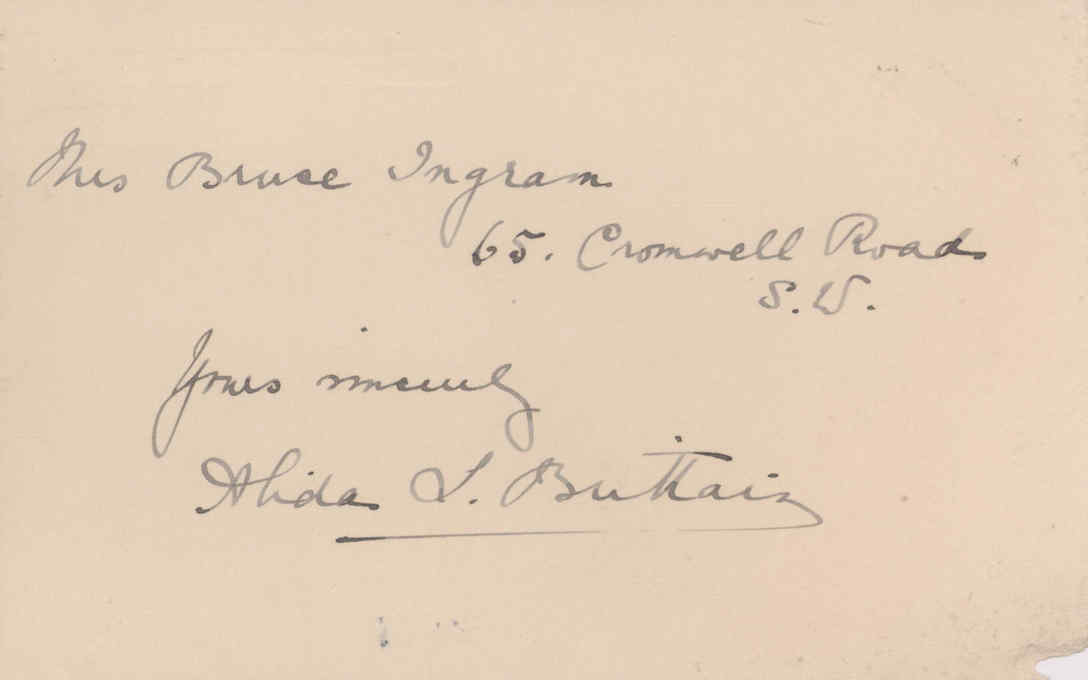 Mrs Bruce Ingram
65. Cromwell Road
S.W.
Yours sincerely
Alida L. Brittain